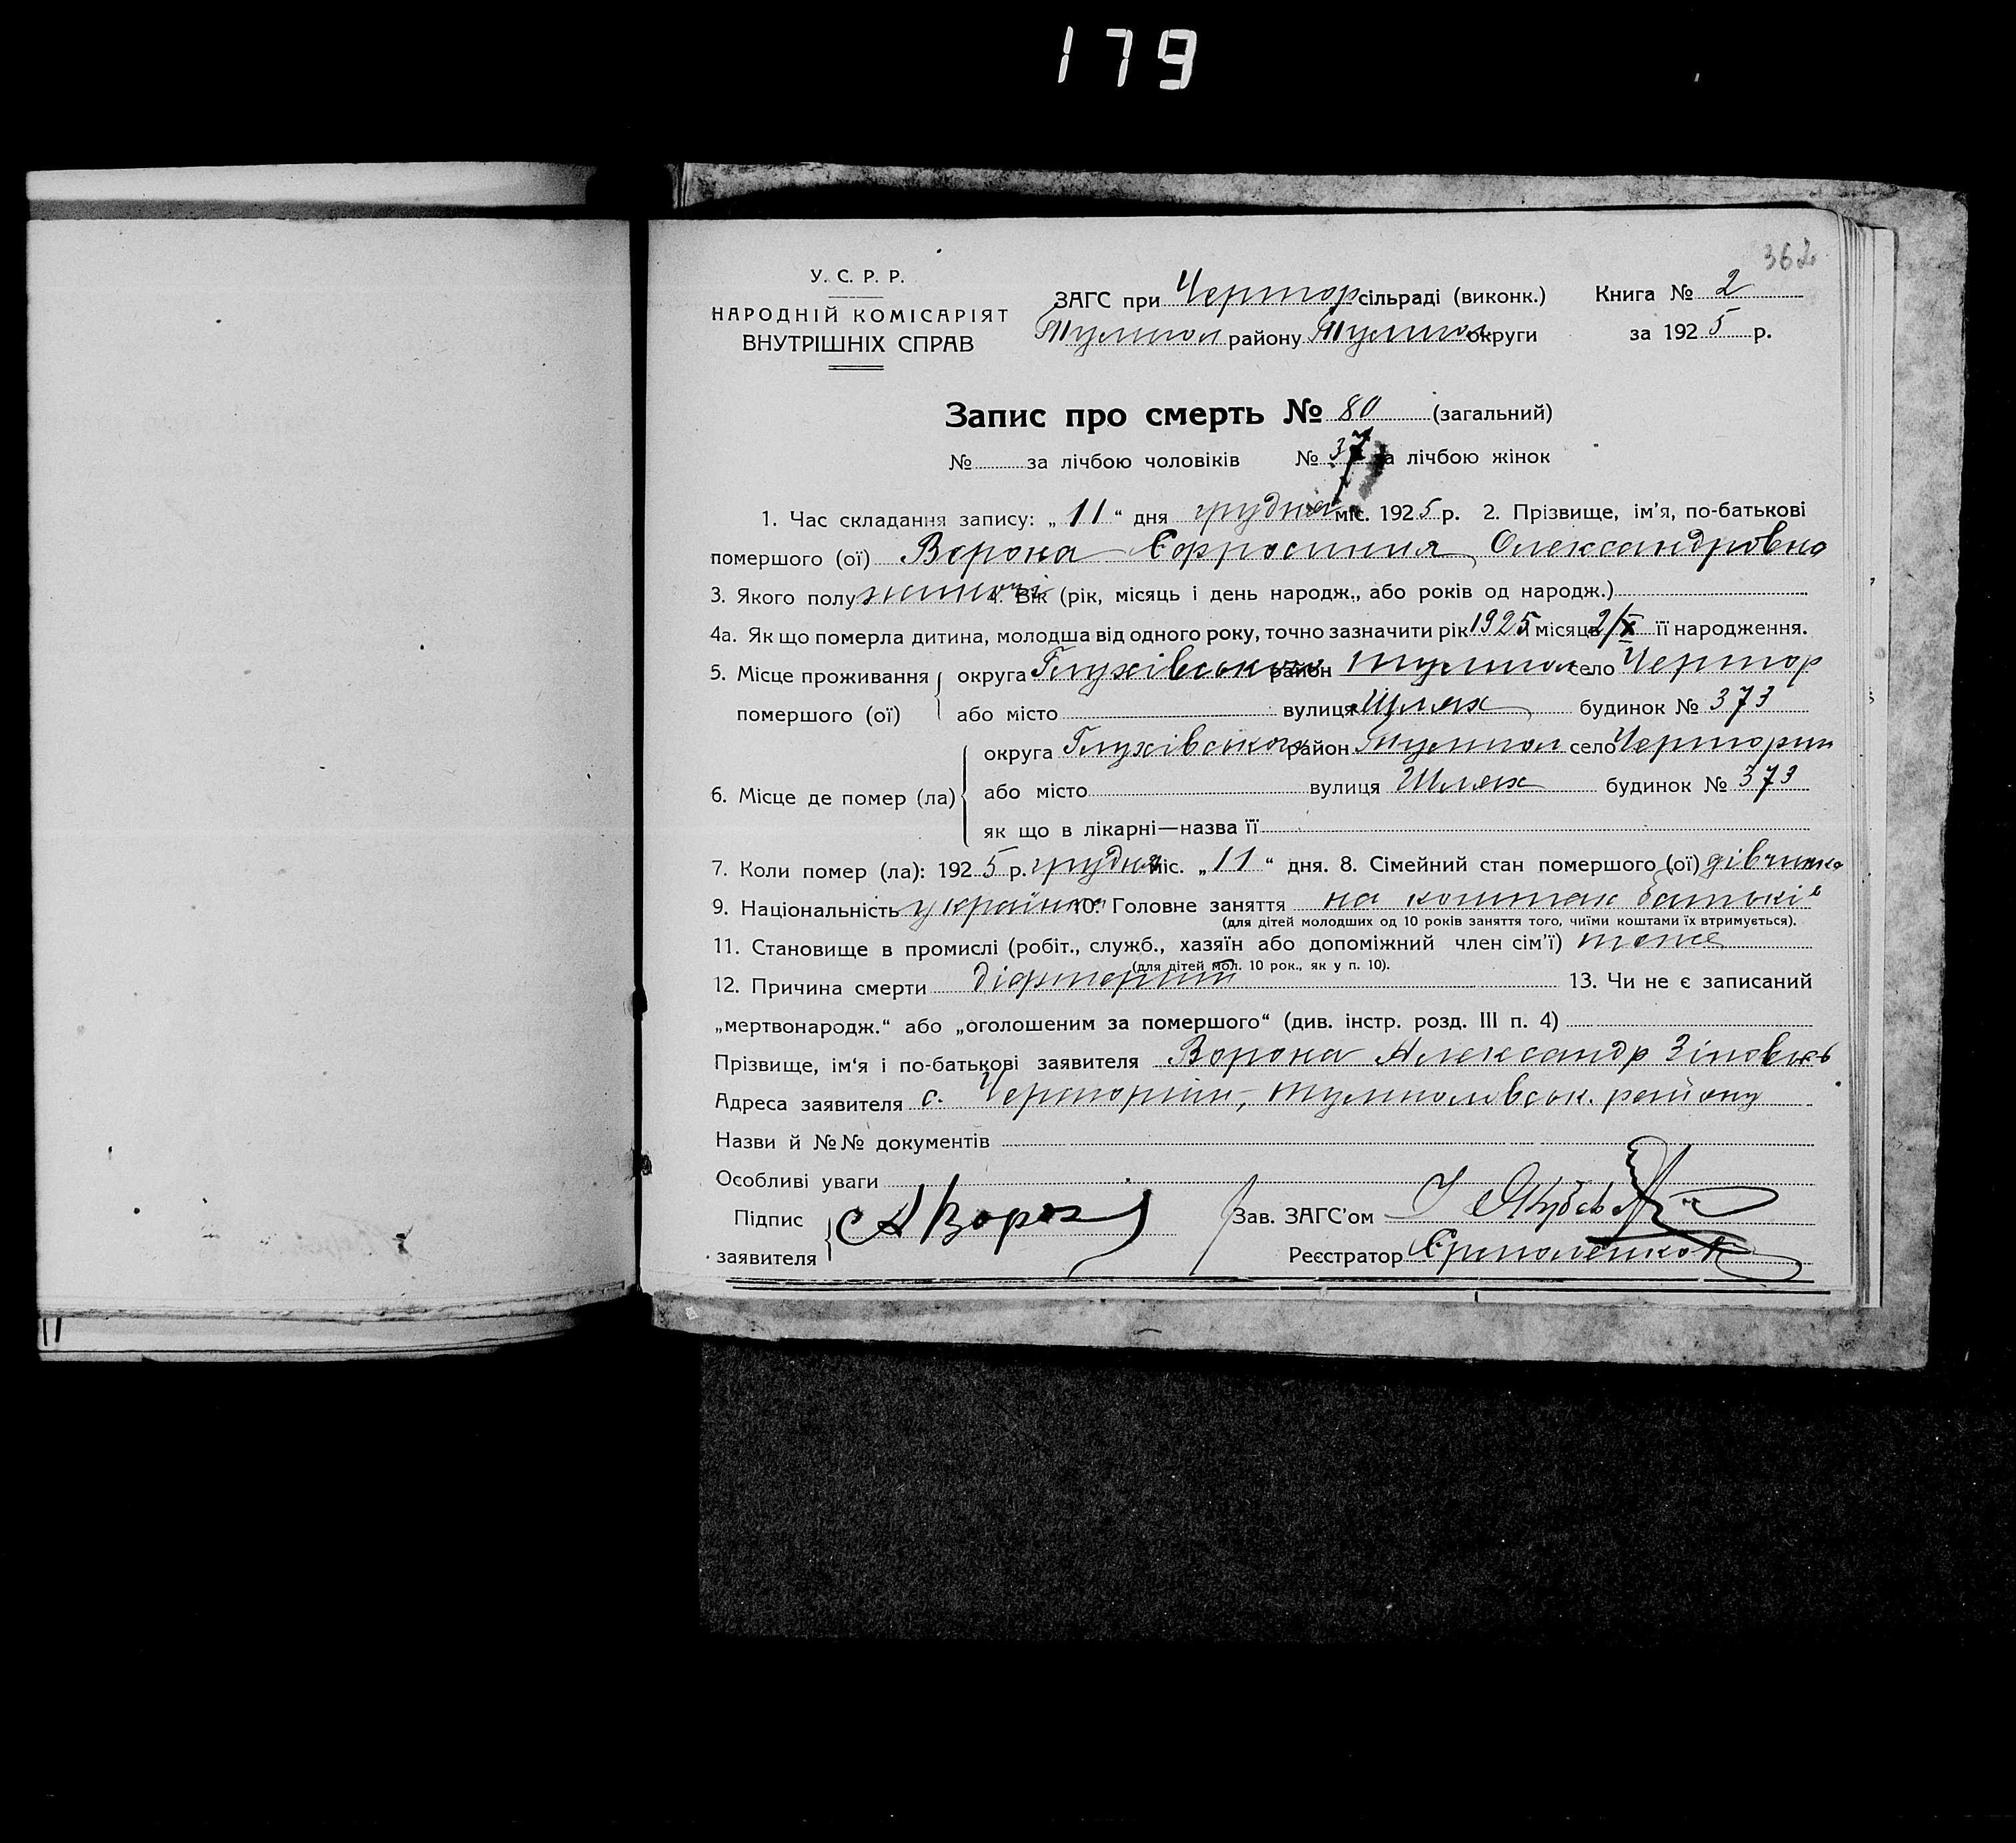 179
362
У. С. Р. Р.
НАРОДНІЙ КОМІСАРІЯТ
ВНУТРІШНІХ СПРАВ
ЗАГС при Чертор сільраді (виконк.) Книга № 2
району округи за 1925 р.
Запис про смерть № 80 (загальний)
№ за лічбою чоловіків № 37 за лічбою жінок
1. Час складання запису: „11“ дня грудня міс. 1925 р. 2. Прізвище, ім'я, по-батькові
помершого (ої) Ворона Єфросиния Олександровна
3. Якого полу жіночі 4. Вік (рік, місяць і день народж., або років од народж.)
4а. Як що померла дитина, молодша від одного року, точно зазначити рік 1925 місяць 2/X її народження.
5. Місце проживання округа Глухівського район Тулигол село Чертор
помершого (ої) або місто вулиця Шлях будинок № 373
округа Глухівського район Тулигол село Чертории
6. Місце де помер (ла) або місто вулиця Шлях будинок № 373
як що в лікарні—назва її
7. Коли помер (ла): 1925 р. грудня міс. „11“ дня. 8. Сімейний стан помершого (ої) дівчинка
9. Національність українка 10. Головне заняття на коштах батьків
(для дітей молодших од 10 років заняття того, чиїми коштами їх втримується).
11. Становище в промислі (робіт., служб., хазяїн або допоміжний член сім'ї) тоже
(для дітей мол. 10 рок., як у п. 10).
12. Причина смерти діфтерит 13. Чи не є записаний
„мертвонародж.“ або „оголошеним за помершого“ (див. інстр. розд. III п. 4)
Прізвище, ім'я і по-батькові заявителя Ворона Александр
Адреса заявителя с. району
Назви й №№ документів
Особливі уваги
Підпис А Ворона Зав. ЗАГС'ом
заявителя Реєстратор
11